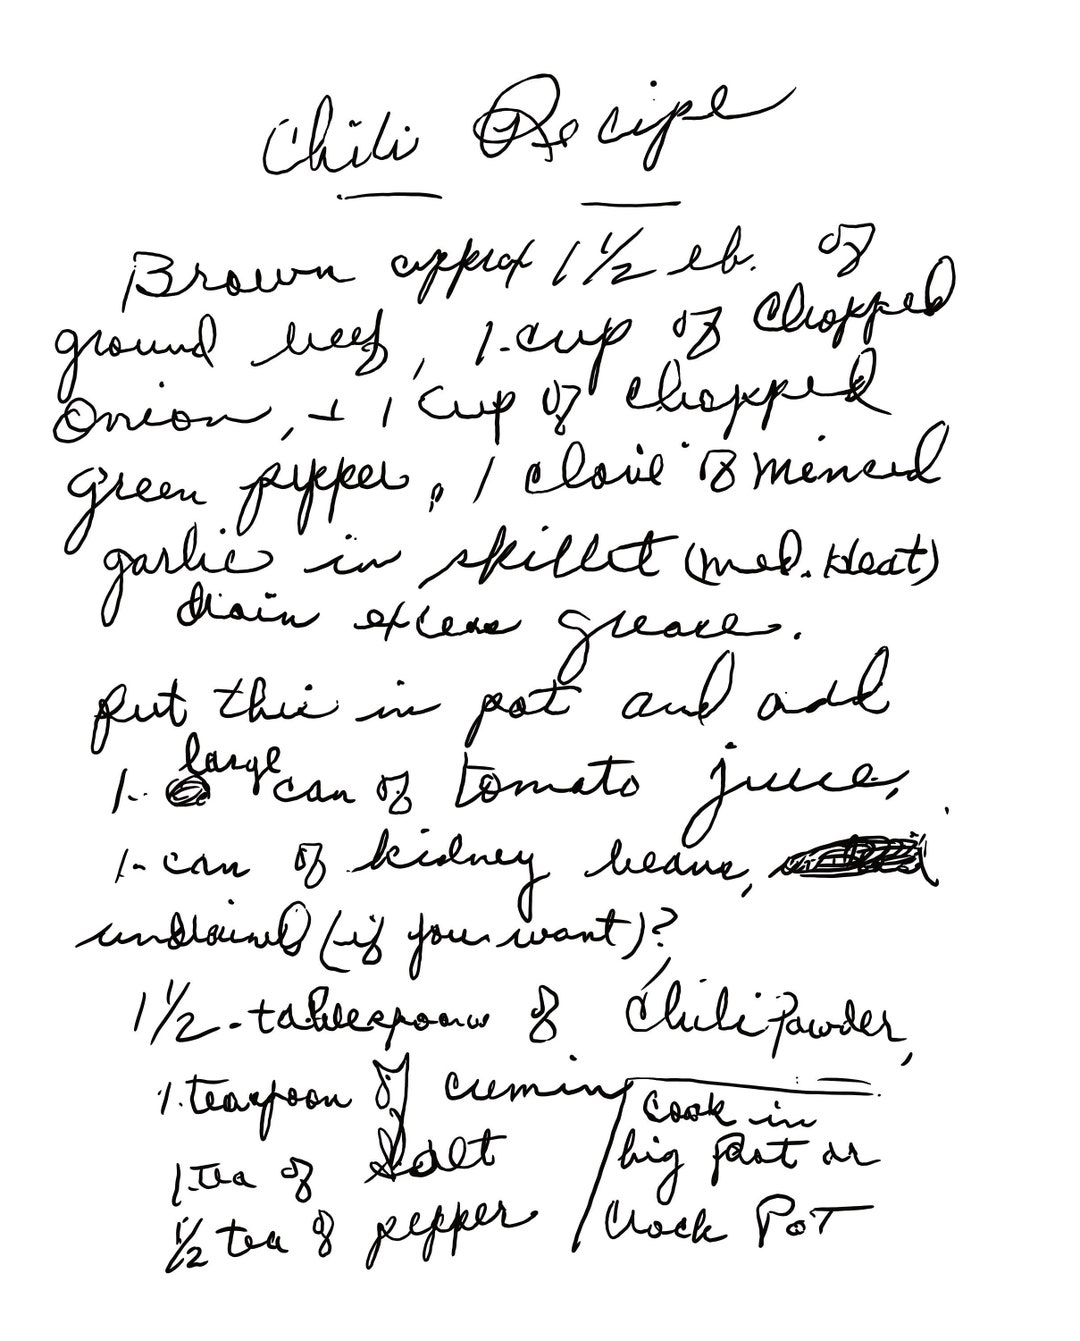 Chili Recipe
Brown approx 1 1/2 lb. of
ground beef, 1-cup of chopped
onion, + 1 cup of chopped
green pepper, 1 clove of minced
garlic in skillet (med. Heat)
drain excess grease.
put this in pot and add
1- large can of tomato juice,
1- can of kidney beans,
undrained (if you want)?
1 1/2 - tablespoons of Chili Powder,
1. teaspoon of cumin
1. tea of Salt
1/2 tea of pepper
Cook in
big pot or
Crock Pot